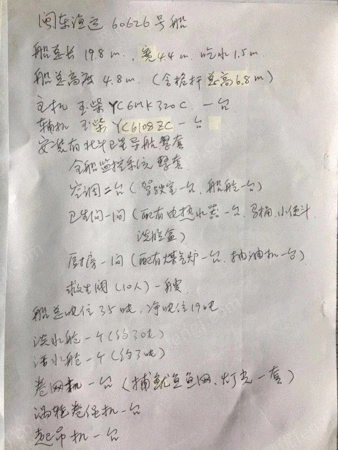 闽东渔运60626号船
船总长19.8m.宽4.4m.吃水1.5m
船总高度4.8m.(含桅杆总高6.8m)
主机 玉柴YC6MK320C 一台
辅机 玉柴YC6108ZC 一台
安装有北斗卫星导航整套
全船监控系统整套
空调二台(驾驶室一台、船舱一台)
卫生间一间(配有电热水器一台、马桶、小便斗
洗脸盆)
厨房一间(配有煤气炉一台、抽油机一台)
救生阀(10人)一艘
船总吨位35吨.净吨位19吨
淡水舱一个(约3吨)
清水舱一个(约7吨)
卷网机一台(捕鱿鱼鱼网、灯光一套)
涡轮卷缆机一台
起吊机一台